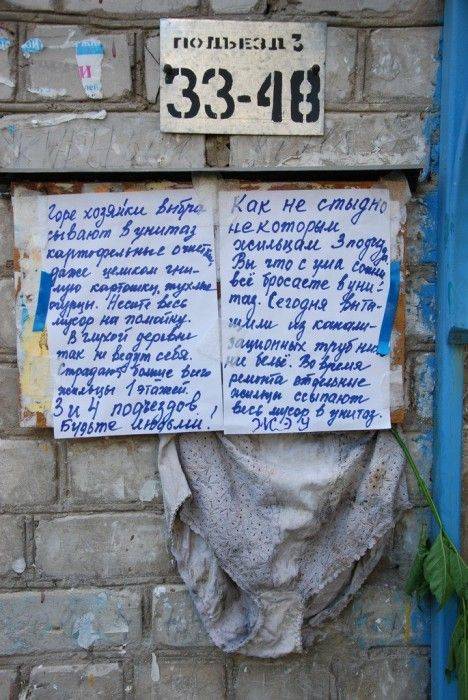 ПОДЪЕЗД 3
33-48
Горе хозяйки выбра
сывают в унитаз
картофельные очистки
даже целиком гни-
лую картошку, тухлые
огурцы. Несите весь
мусор на помойку.
В глухой деревни
так не ведут себя.
Страдают больше всего
жильцы 1 этажей.
3 и 4 подъездов
Будьте людьми!
Как не стыдно
некоторым
жильцам 3 подъезда.
Вы что с ума сошли
всё бросаете в уни-
таз. Сегодня выта-
щили из канали-
зационных труб ниж-
нее бельё. Во время
ремонта отдельные
жильцы ссыпают
весь мусор в унитаз.
ЖЭУ